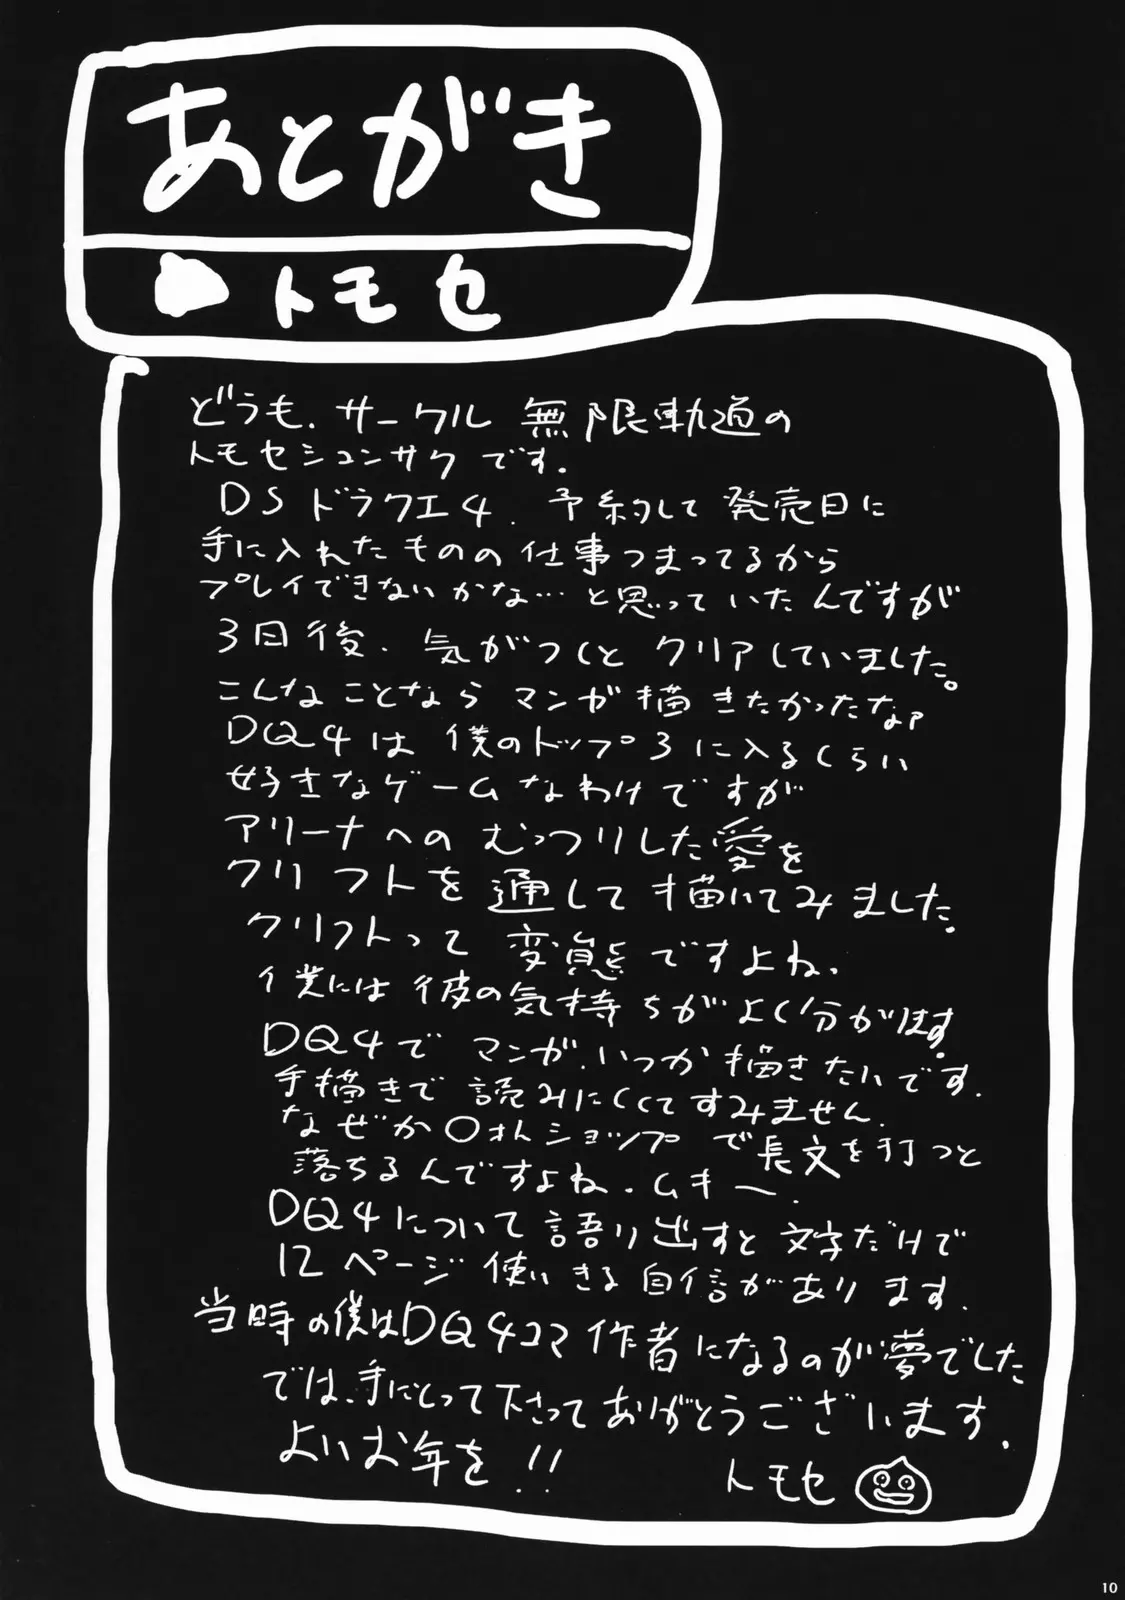 あとがき
トモセ
どうも、サークル 無限軌道の
トモセシュンサク です。
DSドラクエ4、予約して 発売日に
手に入れたものの 仕事つまってるから
プレイできないかな…と思っていたんですが
3日後、気がつくと クリアしていました。
こんなことなら マンガ描きたかったなァ
DQ4は 僕のトップ3に入るくらい
好きなゲームなわけですが
アリーナへの むっつりした愛を
クリフトを通して描いてみました。
クリフトって 変態ですよね、
僕には 彼の気持ちがよく分かります。
DQ4で マンガ、いつか描きたいです。
手描きで 読みにくくてすみません。
なぜか〇ォトショップで長文を打つと
落ちるんですよね。ムキー。
DQ4について語り出すと 文字だけで
12ページ 使いきる自信があります。
当時の僕はDQ4コマ作者になるのが夢でした
では、手にとって下さってありがとうございます。
よいお年を!!
トモセ
10